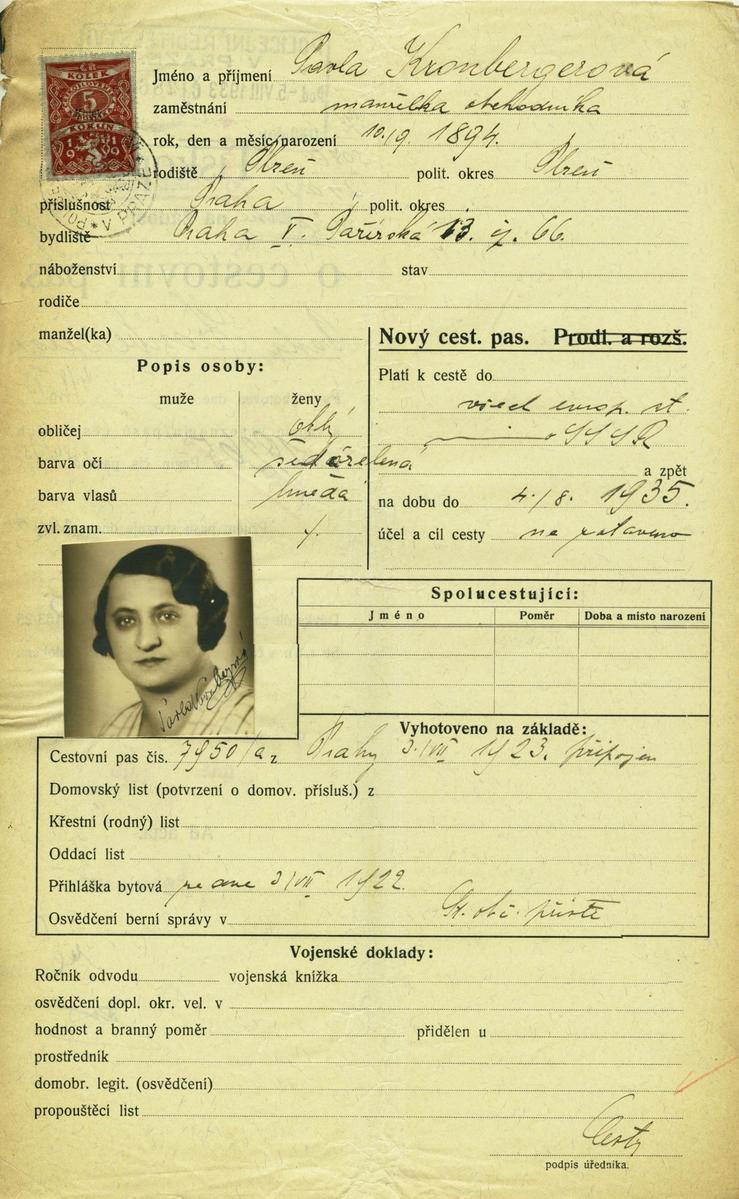 ČR
KOLEK
5
KORUN
19
V PRAZE
Jméno a příjmení Pavla Kronbergerová
zaměstnání manželka obchodníka
rok, den a měsíc narození 10./9. 1894.
rodiště Plzeň polit. okres Plzeň
příslušnost Praha polit. okres
bydliště Praha V. Pařížská 13. čp. 66.
náboženství stav
rodiče
manžel(ka)
Nový cest. pas. Prodl. a rozš.
Popis osoby:
muže ženy
obličej oblý
barva očí šedozelená
barva vlasů hnědá
zvl. znam. /.
Platí k cestě do
všech evrop. st.
SSSR
a zpět
na dobu do 4./8. 1935.
účel a cíl cesty na zotavenou
Spolucestující:
Jméno Poměr Doba a místo narození
Vyhotoveno na základě:
Cestovní pas čís. 7950/a z Prahy 3/VII 1923. připojen
Domovský list (potvrzení o domov. přísluš.) z
Křestní (rodný) list
Oddací list
Přihláška bytová ze dne 3/VII 1922.
Osvědčení berní správy v St. obč. příště
Vojenské doklady:
Ročník odvodu vojenská knížka
osvědčení dopl. okr. vel. v
hodnost a branný poměr přidělen u
prostředník
domobr. legit. (osvědčení)
propouštěcí list
podpis úředníka.